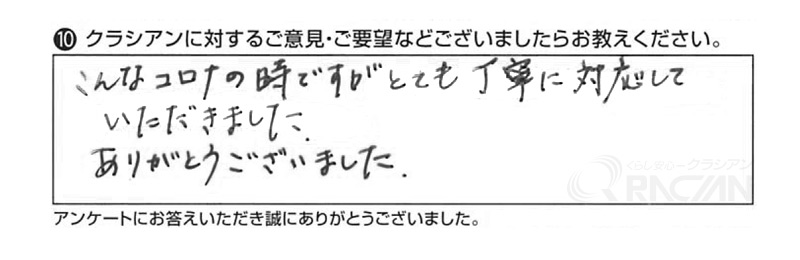 ❿ クラシアンに対するご意見・ご要望などございましたらお教えください。
こんなコロナの時ですがとても丁寧に対応して
いただきました.
ありがとうございました.
くらし安心クラシアン
QRACIAN
アンケートにお答えいただき誠にありがとうございました。